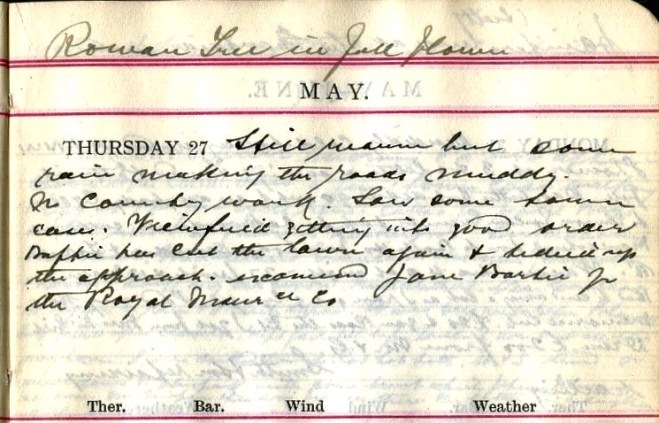 Rowan Tree in full flower
MAY.
THURSDAY 27 Still warm but some
rain making the roads muddy.
No country work. Saw some town
cases. Viewfield getting into good order
has cut the lawn again & up
the approach. examined Jane for
the Royal Insur ce Co
Ther. Bar. Wind Weather